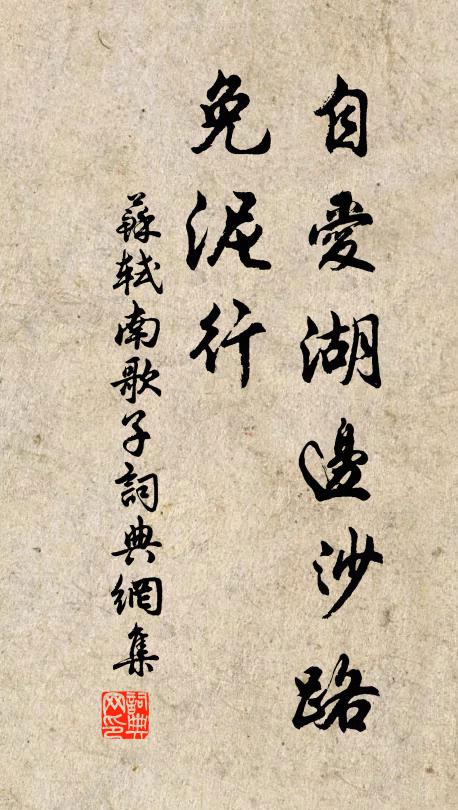 自愛湖邊沙路
免泥行
蘇軾南歌子詞典網集
詞典网印